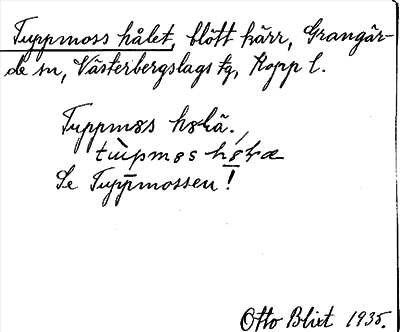 Tuppmoss hålet, blött kärr, Grangär-
de sn, Västerbergslags fg, Kopp l.
Tuppmøs høkä.
tùpmøs hǿɫæ
Se Tuppmossen!
Otto Blixt 1935.